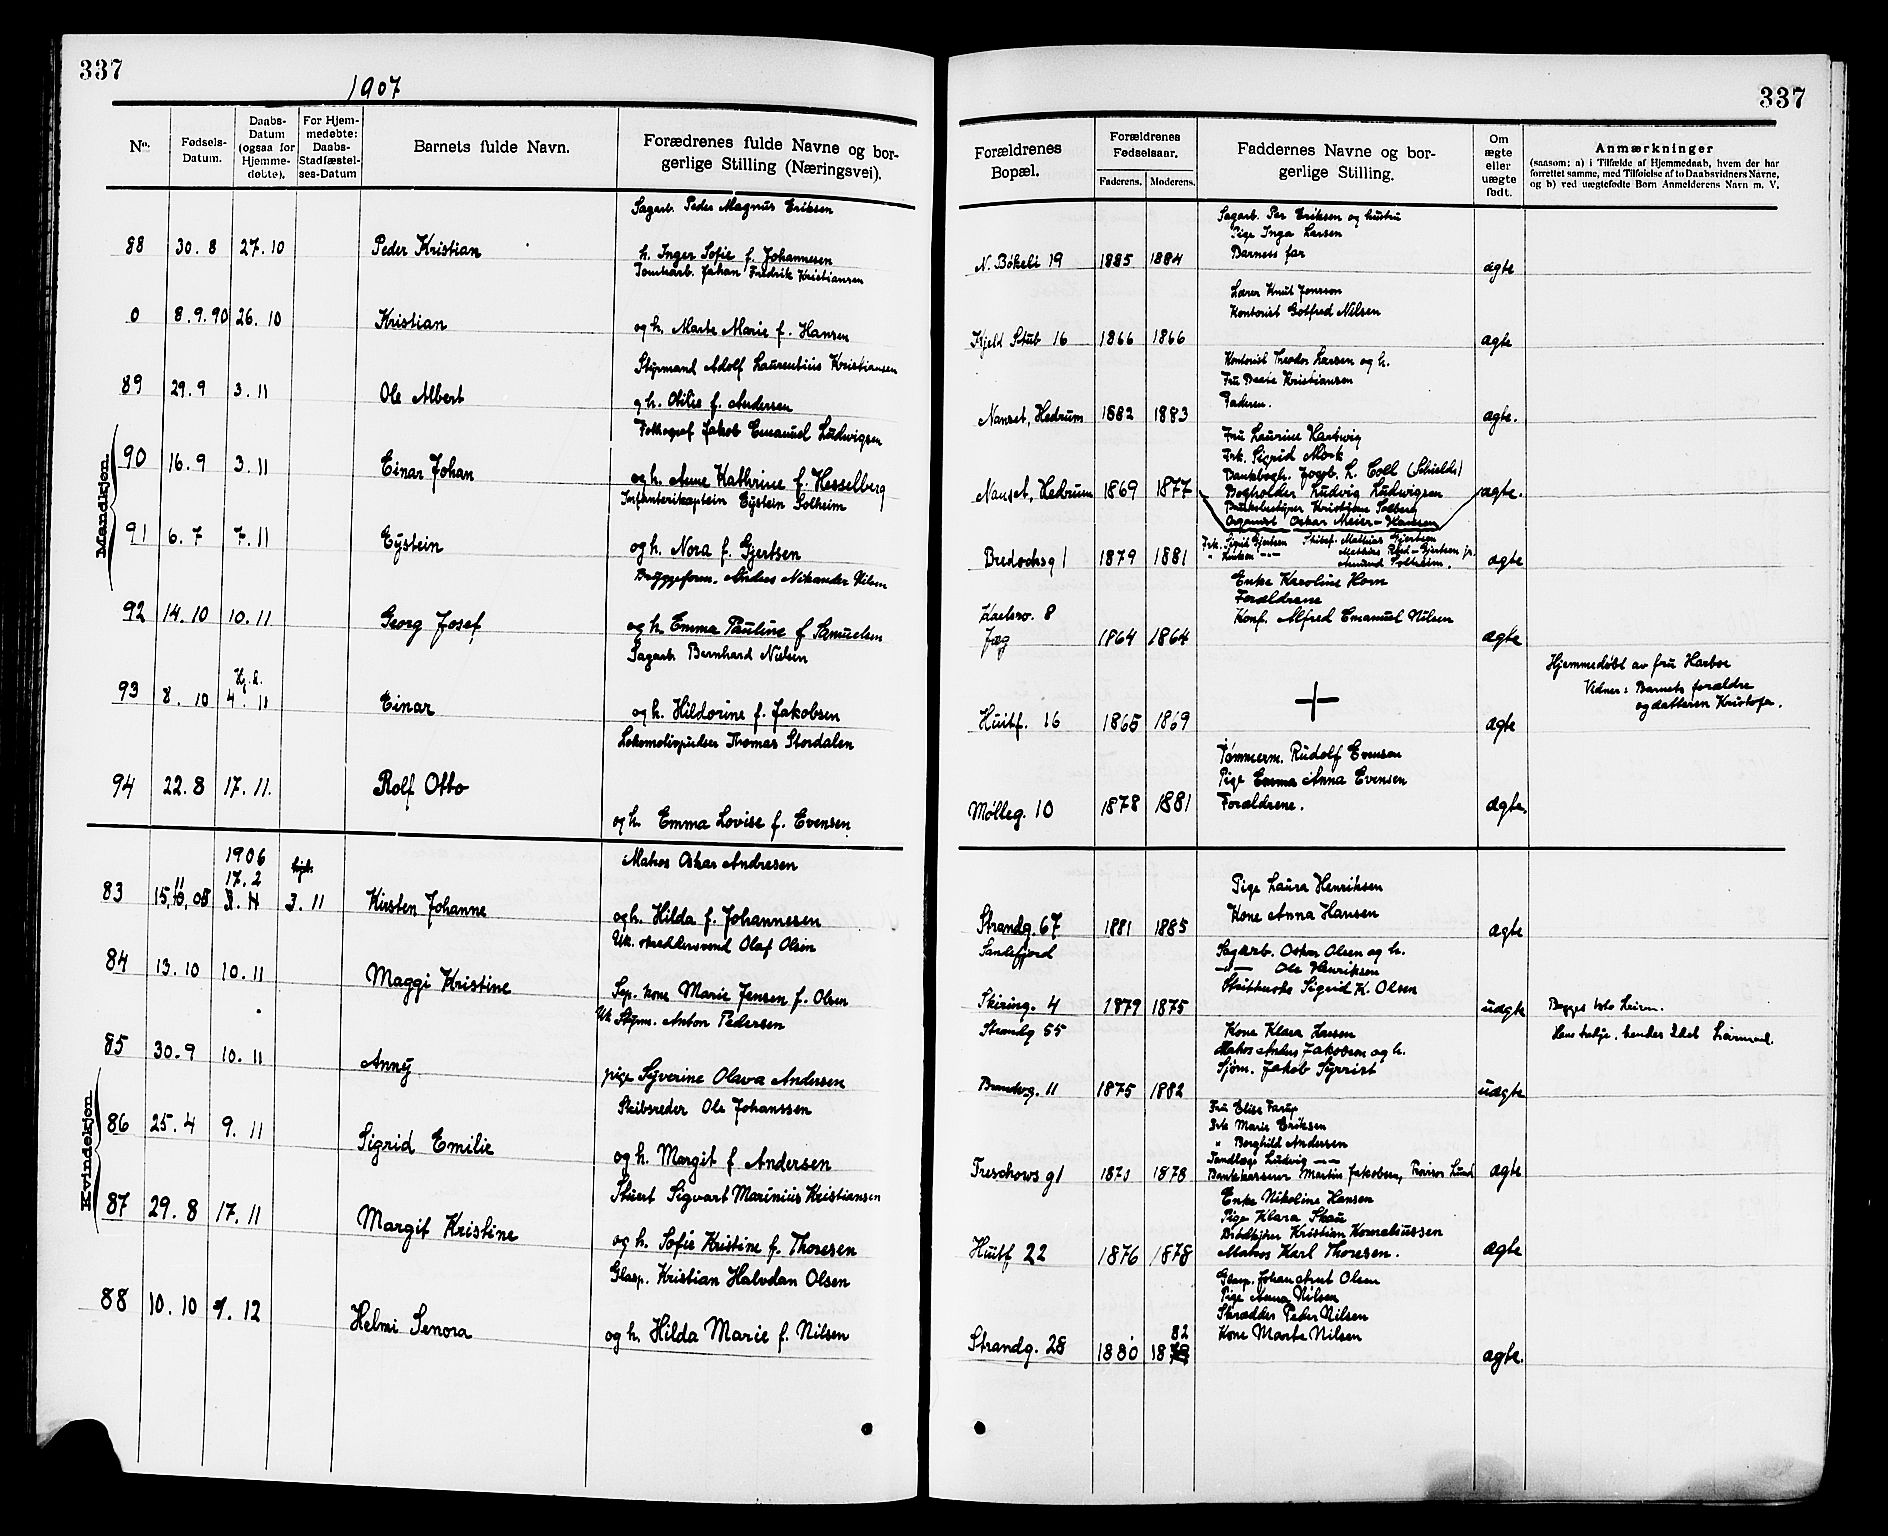 337
1907
No.
Fødsels-
Datum.
Daabs-
Datum
(ogsaa for
Hjemme-
døbte).
For Hjem-
medøbte:
Daabs-
Stadfæstel-
ses-Datum
Barnets fulde Navn.
Forædrenes fulde Navne og bor-
gerlige Stilling (Næringsvei).
Mandkjøn.
Sagarb. Peder Magnus Eriksen
88 30. 8 27. 10 Peder Kristian h. Inger Sofie f. Johannesen
Tomtarb. Johan Fredrik Kristiansen
0 8. 9. 90 26. 10 Kristian og h. Marte Marie f. Hansen
Styrmand Adolf Laurentius Kristiansen
89 29. 9 3. 11 Ole Albert og h. Otilie f. Andersen
Fotograf Jakob Emanuel Ludwigsen
90 16. 9 3. 11 Einar Johan og h. Anne Kathrine f. Hesselberg
Infanterikaptein Eystein Solheim
91 6. 7 7. 11 Eystein og h. Nora f. Gjertsen
Bryggeform. Anders Nikander Nilsen
92 14. 10 10. 11 Georg Josef og h. Emma Pauline f. Samuelsen
Sagarb. Bernhard Nielsen
Hj. d.
93 8. 10 4. 11 Einar og h. Hildorine f. Jakobsen
Lokomotivpudser Thomas Stordalen
94 22. 8 17. 11. Rolf Otto
og h. Emma Lovise f. Evensen
Kvindekjøn.
1906
Matros Oskar Andresen
17. 2
83 3. 11 Kirsten Johanne og h. Hilda f. Johannesen
Uk. skræddersvend Olaf Olsen
84 13. 10 10. 11 Maggi Kristine Sep. kone Marie Jensen f. Olsen
Uk Styrm. Anton Pedersen
85 30. 9 10. 11 Anny pige Syverine Olava Andersen
Skibsreder Ole Johanssen
86 25. 4 9. 11 Sigrid Emilie og h. Margit f. Andersen
Stuert Sigvart Marinius Kristiansen
87 29. 8 17. 11 Margit Kristine og h. Sofie Kristine f. Thoresen
Glasp. Kristian Halvdan Olsen
88 10. 10 12 Helmi Senora og h. Hilda Marie f. Nilsen
337
Forældrenes
Bopæl.
Forældrenes
Fødselsaar.
Faderens. Moderens.
Faddernes Navne og bor-
gerlige Stilling.
Om
ægte
eller
uægte
født.
Anmærkninger
(saasom: a) i Tilfælde af Hjemmedaab, hvem der har
forrettet samme, med Tilføielse af to Daabsvidners Navne,
og b) ved uægtefødte Børn Anmelderens Navn m. V.
Sagarb. Per Eriksen og hustru
Pige Inga Larsen
Barnets far
N. Bøkeli 19 1885 1884 ægte
Lærer Knut Jonsson
Kontorist Gotfred Nilsen
Kjeld Stub 16 1866 1866 ægte
Kontorist Theodor Larsen og h.
Fru Beate Kristiansen
Faderen.
Nanset, Hedrum 1882 1883 ægte.
Fru Laurine Hartwig
Frk. Sigrid Mørk
Bogholder Ludvig Ludwigsen
Nanset, Hedrum 1869 1877 ægte.
Organist Oskar Meier-Hansen
Frk. Sigrid Gjertsen Skibsf. Mathias Gjertsen
Bredochsg 1 1879 1881 ægte
Enke Karoline Horn
Forældrene
Konf. Alfred Emanuel Nilsen
8
Jæg 1864 1864 ægte
Hjemmedøbt av fru Harboe
Vidner: Barnets forældre
og datteren
+
Huitf. 16 1865 1869 ægte
Tømmerm. Rudolf Evensen
Pige Anna Evensen
Forældrene.
Mølleg. 10 1878 1881 ægte
Pige Laura Henriksen
Kone Anna Hansen
Strandg. 67 1881 1885 ægte
Sandefjord
Sagarb. Oskar Olsen og h.
—"— Ole Henriksen
Sigrid K. Olsen
Skiring. 4 1879 1875 uægte
Strandg 55
Kone Klara Larsen
Matros Anders Jakobsen og h.
Sjøm. Jakob Syvrist
1875 1882 uægte
Fru Elise Farup
Frk Marie Eriksen
" Borghild Andersen
Tandlæge Ludvig —"—
Bankkasserer Martin Jakobsen, Revisor Lund
Treschows g 1 1878 ægte
Enke Nikoline Hansen
Pige Klara Skau
Kristian Korneliussen
Matros Karl Thoresen.
Huitf 22 1876 1878 ægte
Glasp. Johan Arnt Olsen
Pige Anna Nilsen
Skrædder Peder Nilsen
Kone Marte Nilsen
82
Strandg. 28 1880 ægte.